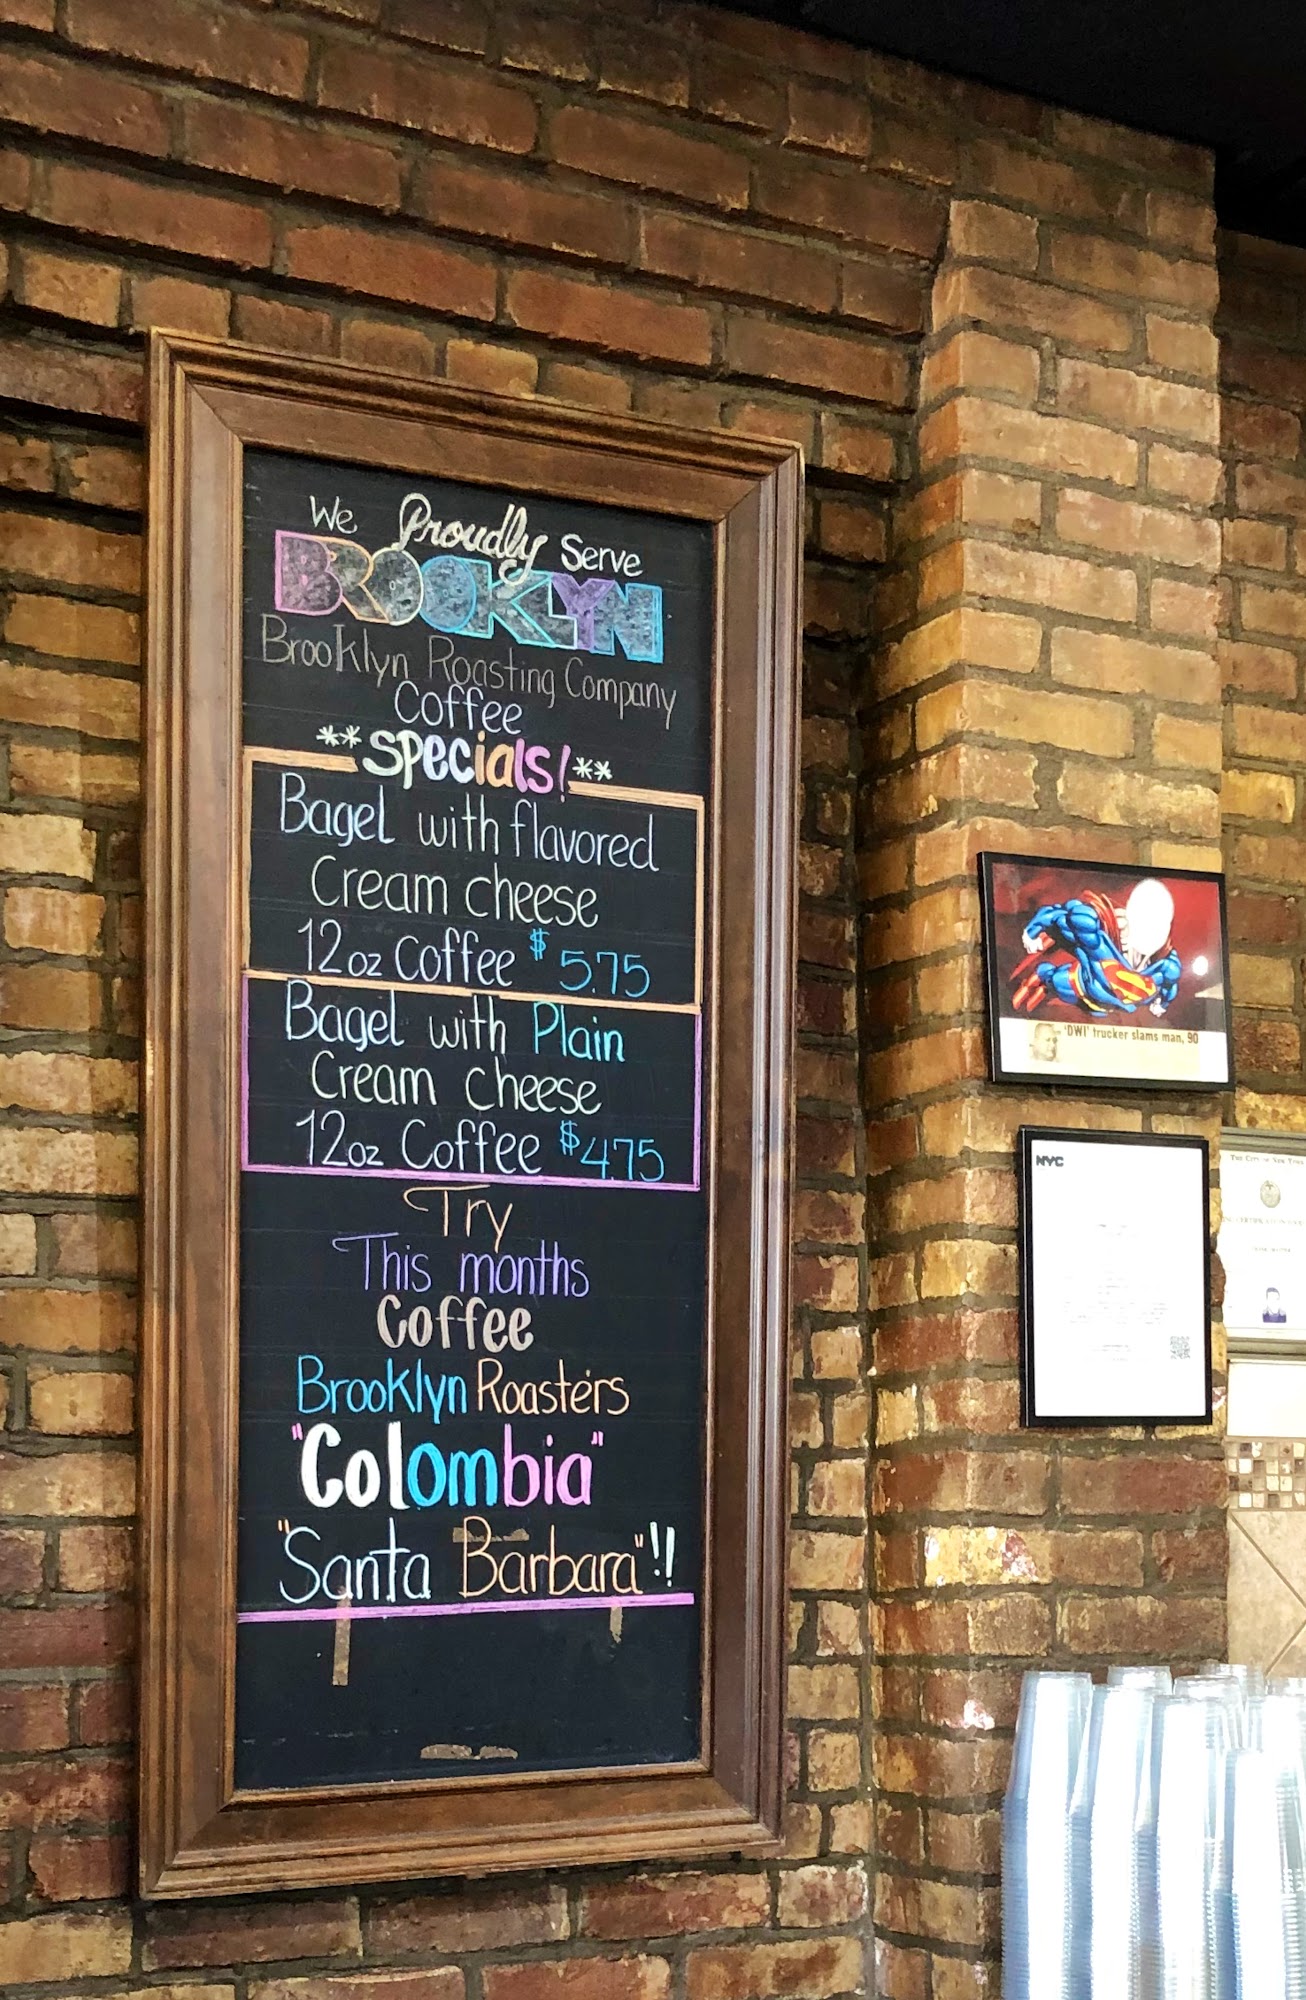 We Proudly Serve
BROOKLYN
Brooklyn Roasting Company
Coffee
**Specials!**
Bagel with flavored
Cream cheese
12oz Coffee $5.75
Bagel with Plain
Cream cheese
12oz Coffee $4.75
Try
This months
Coffee
Brooklyn Roasters
"Colombia"
"Santa Barbara"!!
'DWI' trucker slams man, 90
NYC
THE CITY OF NEW YORK